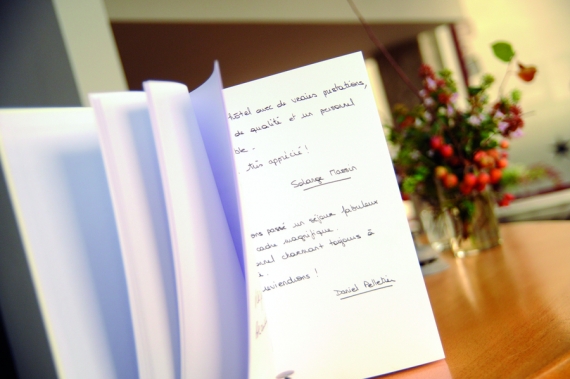 hôtel avec de vraies prestations,
de qualité et un personnel
ble.
très apprécié !
Solange
ons passé un séjour fabuleux
cadre magnifique.
nnel charmant toujours à
.
reviendrons !
Daniel Pelletier